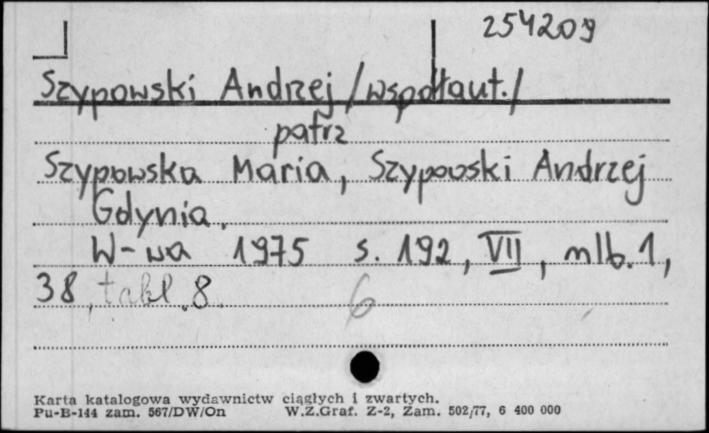 254209
Szypowski Andrzej /współaut./
patrz
Szypowska Maria, Szypowski Andrzej
Gdynia.
W-wa 1975 s. 192, VII, nlb. 1,
38, tabl. 8.
6
Karta katalogowa wydawnictw ciągłych i zwartych.
Pu-B-144 zam. 567/DW/On W.Z.Graf. Z-2, Zam. 502/77, 6 400 000